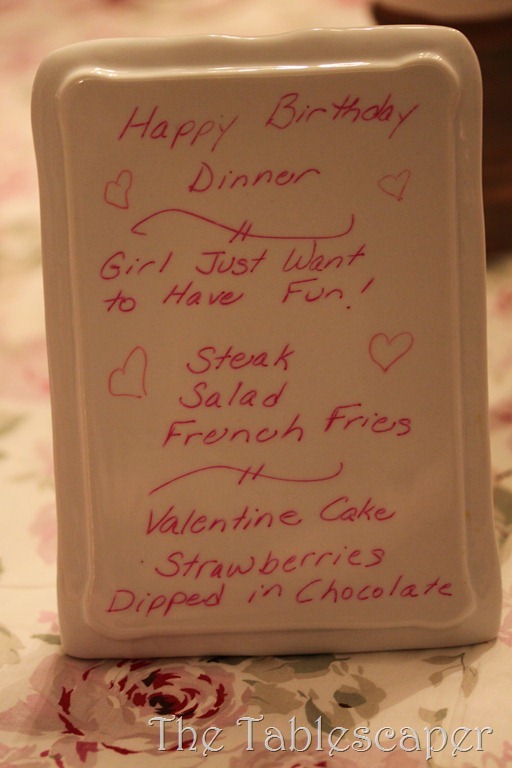 Happy Birthday
Dinner
Girl Just Want
to Have Fun!
Steak
Salad
French Fries
Valentine Cake
Strawberries
Dipped in Chocolate
The Tablescaper